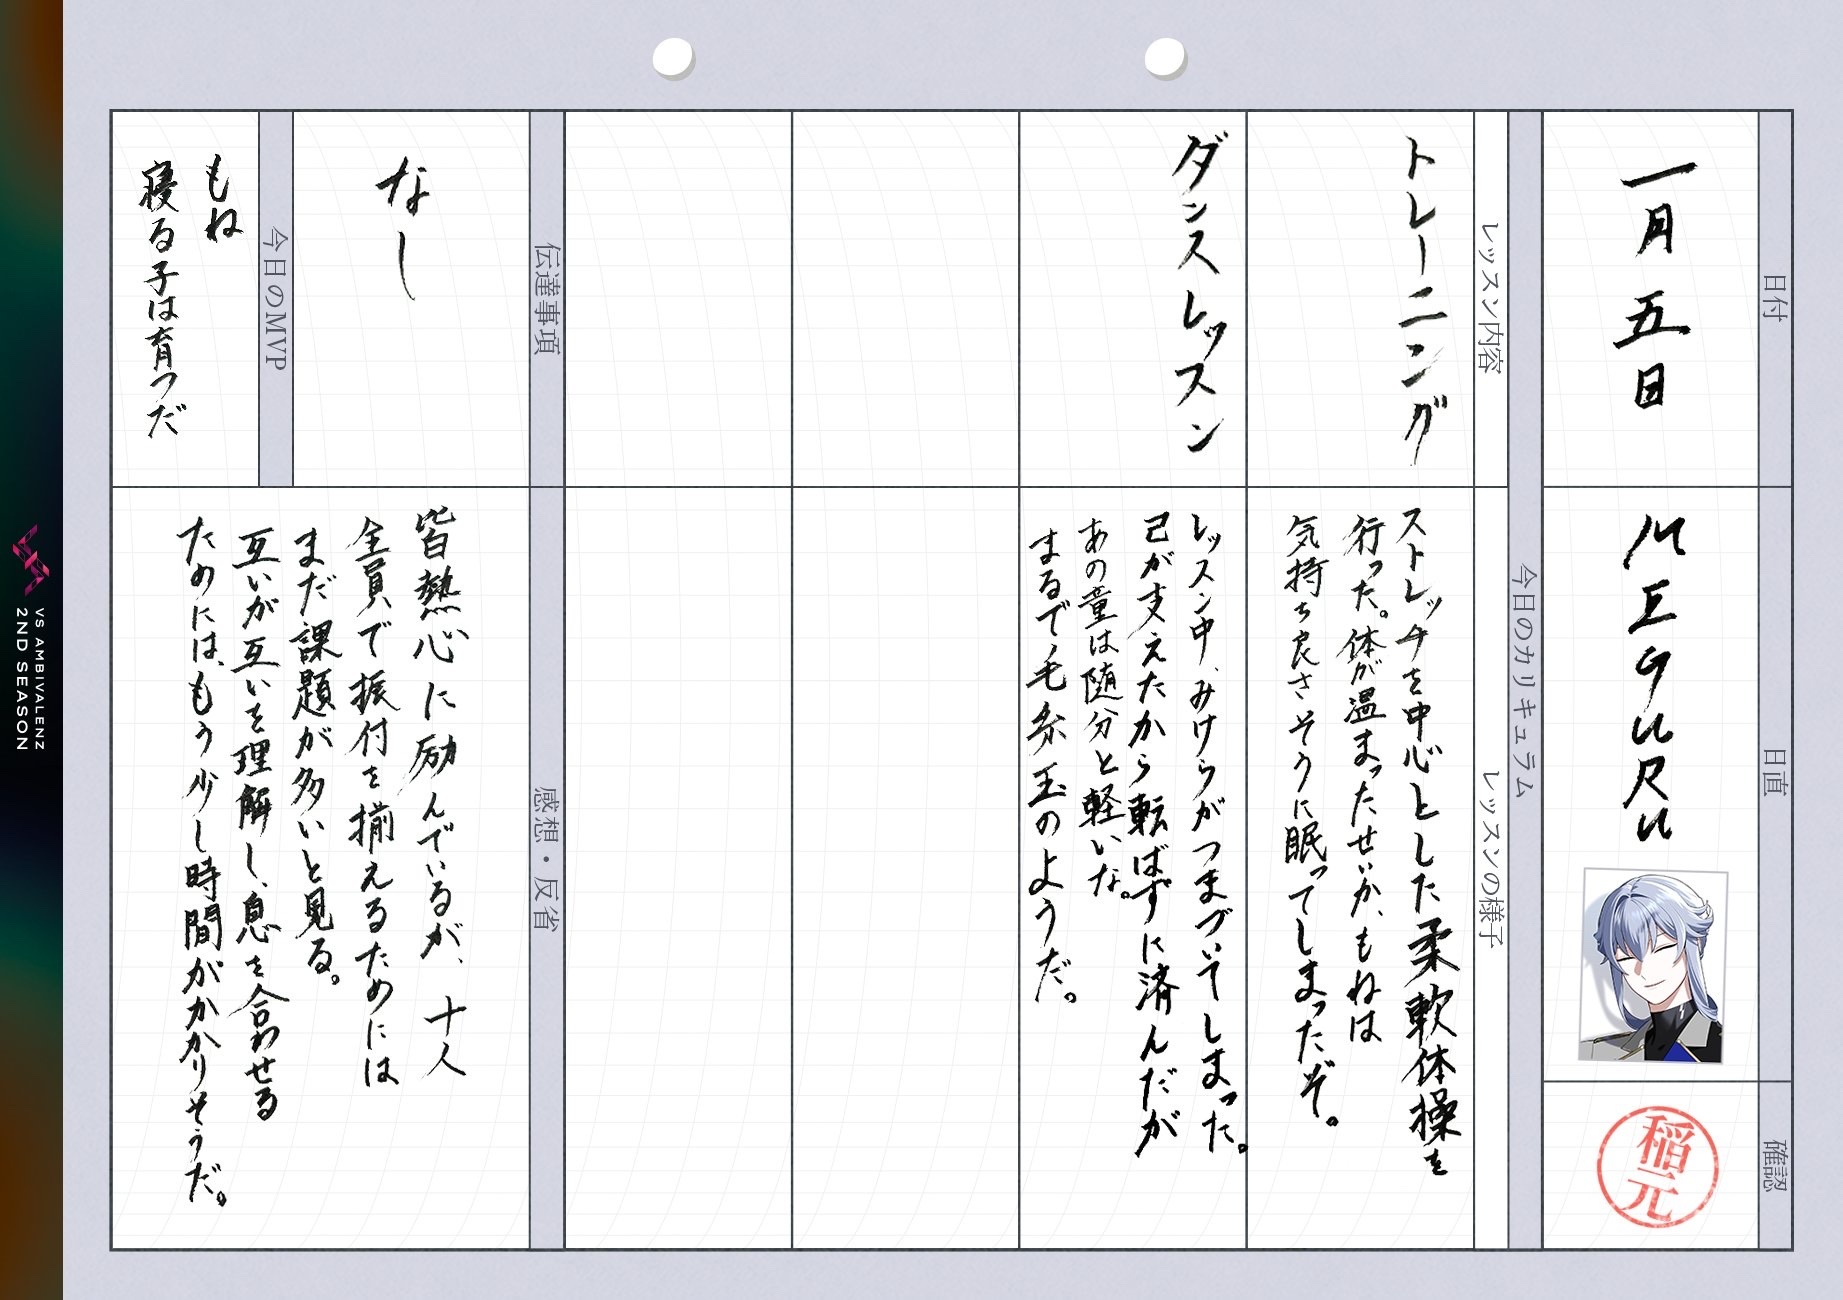 日付
一月五日
日直
MEGURU
確認
稲元
今日のカリキュラム
レッスン内容
レッスンの様子
トレーニング
ストレッチを中心とした柔軟体操を
行った。体が温まったせいか、もねは
気持ち良さそうに眠ってしまったぞ。
ダンスレッスン
レッスン中、みけらがつまづいてしまった。
己が支えたから転ばずに済んだが
あの童は随分と軽いな。
まるで毛糸玉のようだ。
伝達事項
なし
感想・反省
皆熱心に励んでいるが、十人
全員で振付を揃えるためには
まだ課題が多いと見る。
互いが互いを理解し、息を合わせる
ためには、もう少し時間がかかりそうだ。
今日のMVP
もね
寝る子は育つだ
VS AMBIVALENZ
2ND SEASON